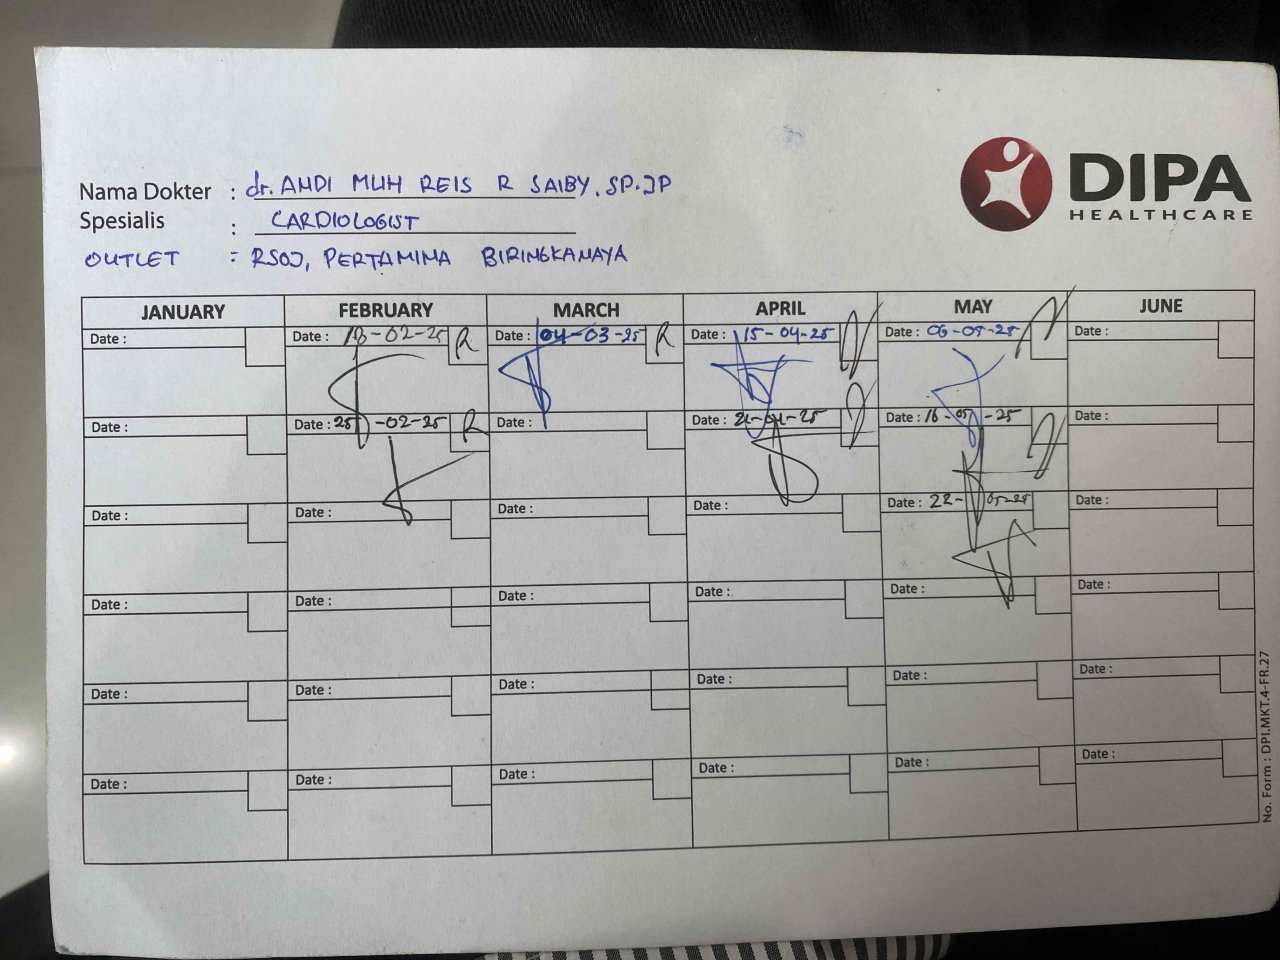 DIPA
HEALTHCARE
Nama Dokter : dr. ANDI MUH REIS R SAIBY. SP.JP
Spesialis : CARDIOLOGIST
OUTLET : RSOJ, PERTAMINA BIRINGKANAYA
JANUARY FEBRUARY MARCH APRIL MAY JUNE
Date : Date : 18-02-25 R Date : 04-03-25 R Date : 15-04-25 Date : 06-05-25 Date :
Date : Date : 25-02-25 R Date : Date : Date : 16-05-25 Date :
Date : Date : Date : Date : Date : 22-05-25 Date :
Date : Date : Date : Date : Date : Date :
Date : Date : Date : Date : Date : Date :
Date : Date : Date : Date : Date : Date :
No. Form : DPI.MKT.4-FR.27